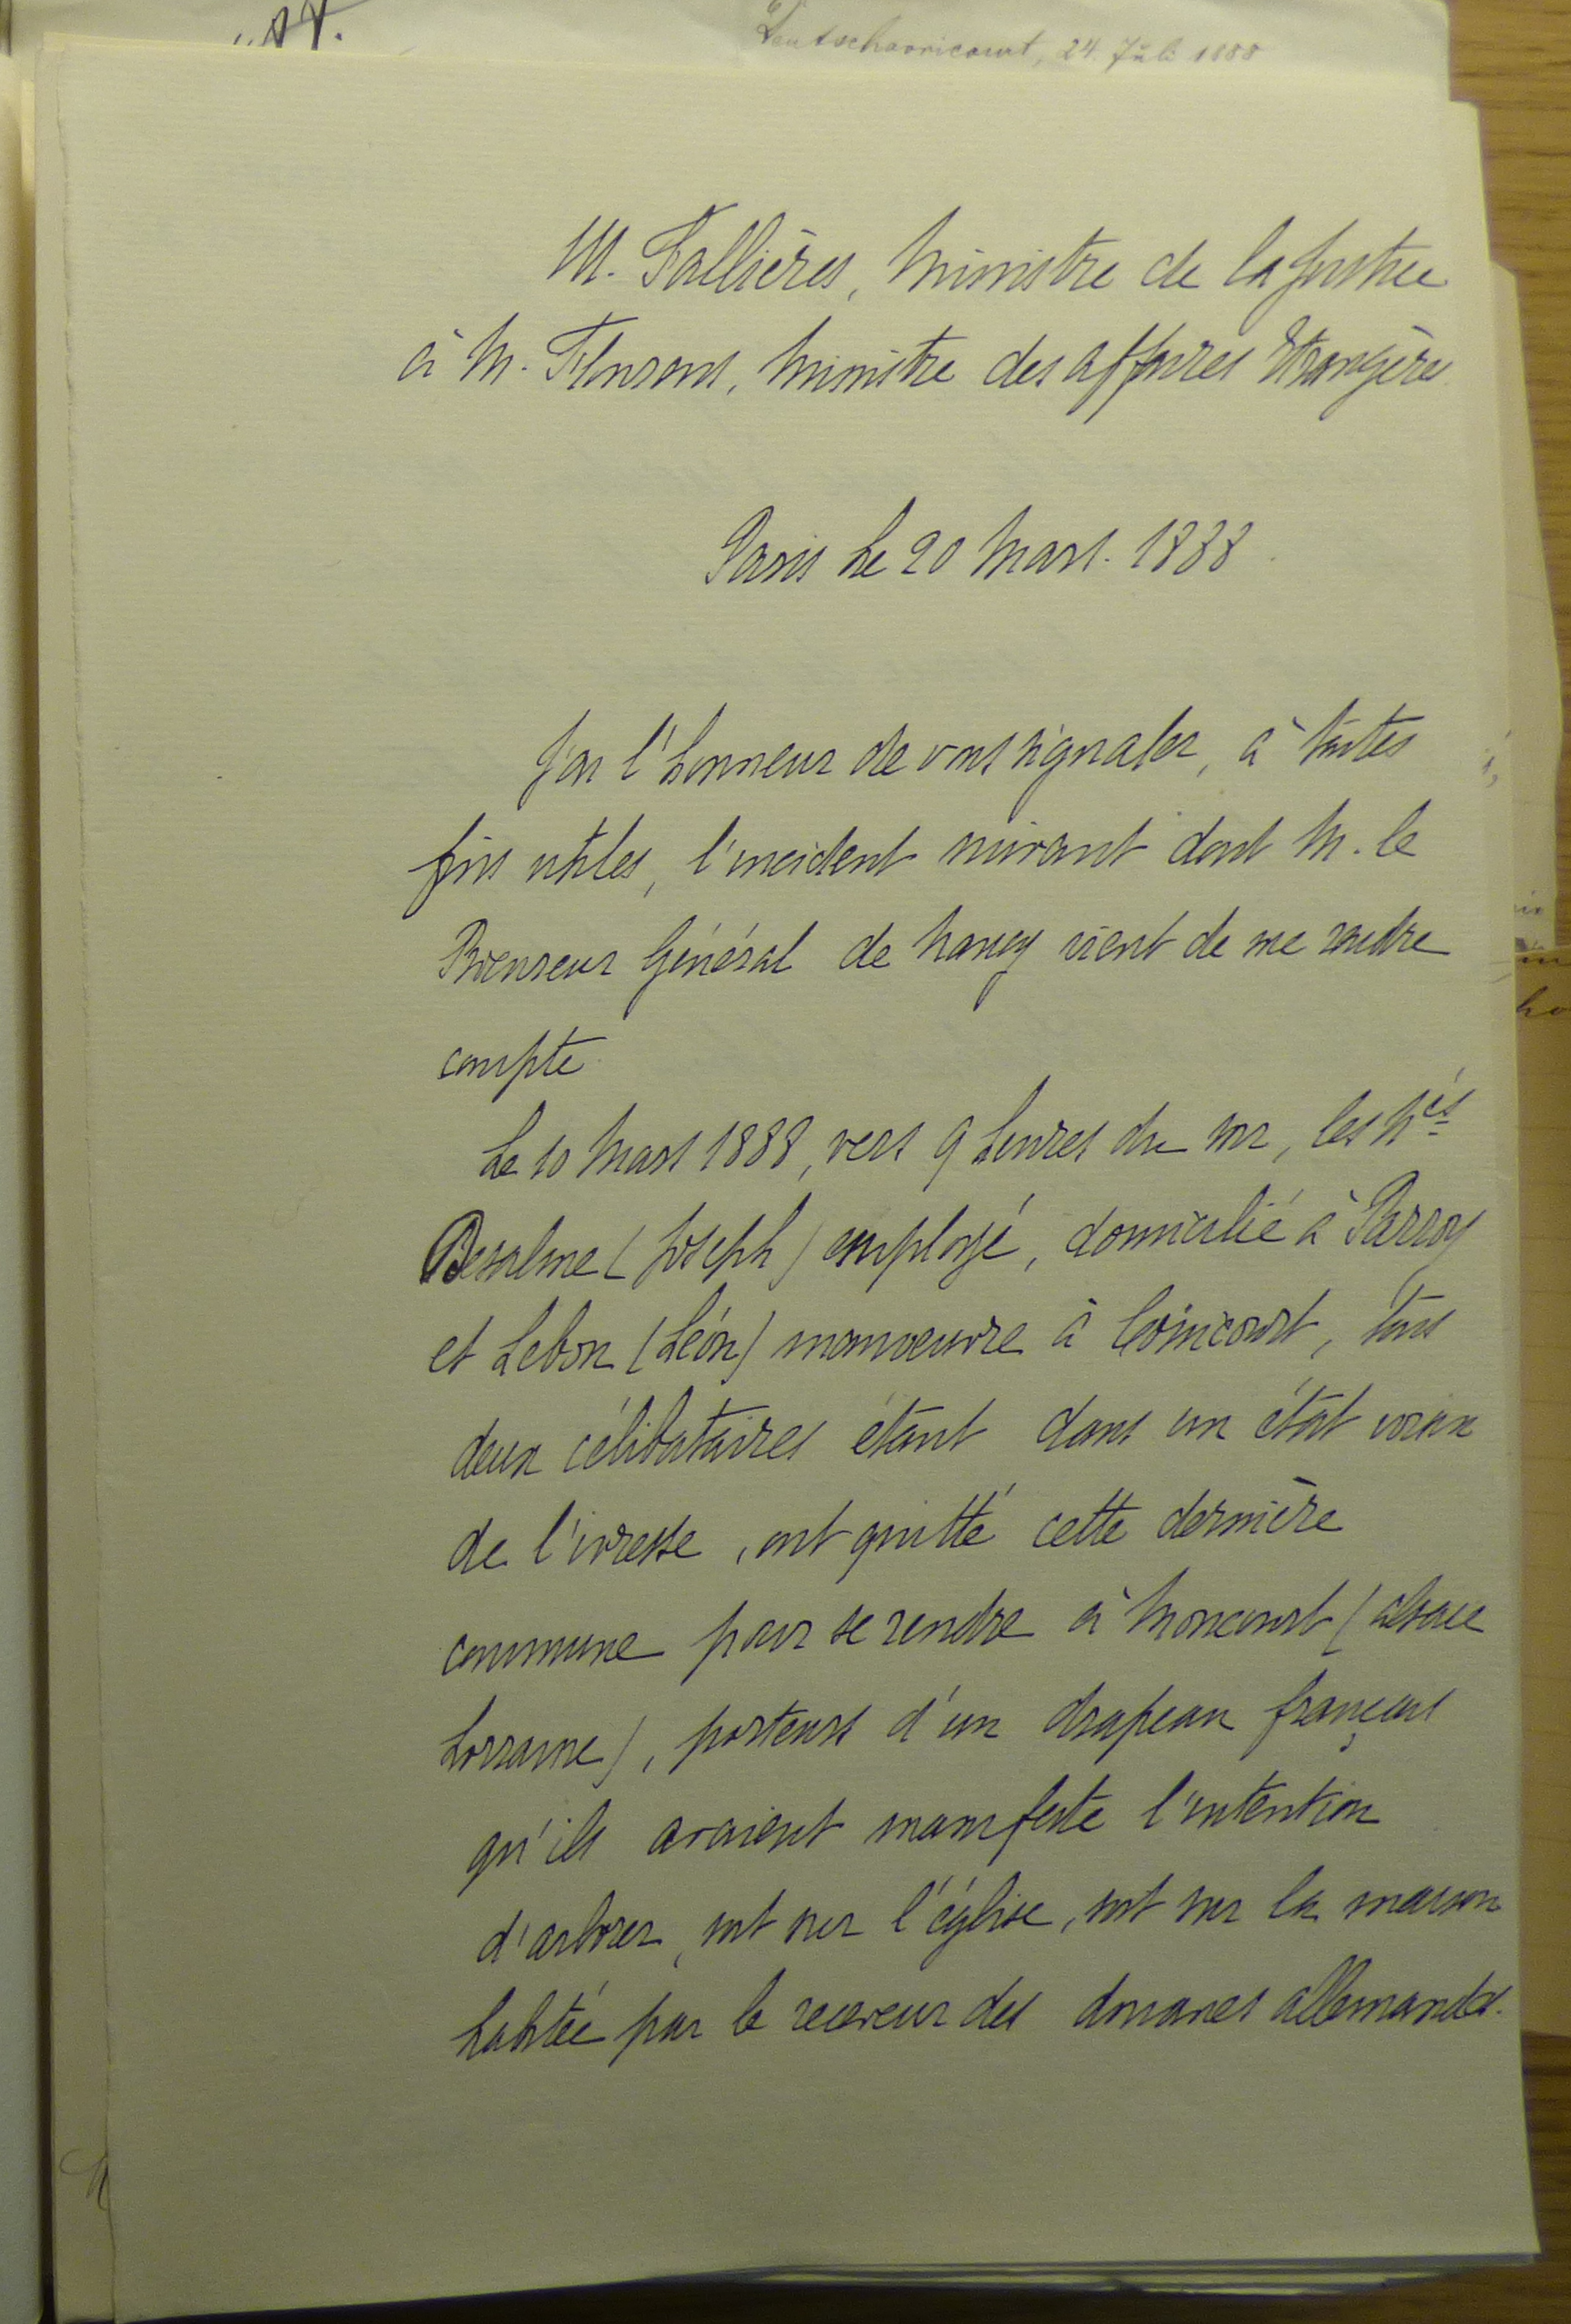 Deutschavricourt, 24. Juli 1888
M. Fallières, Ministre de la Justice
à M. Flourens, Ministre des affaires Etrangères.
Paris le 20 Mars. 1888
J'ai l'honneur de vous signaler, à toutes
fins utiles, l'incident suivant dont M. le
Procureur Général de Nancy vient de me rendre
compte.
Le 10 Mars 1888, vers 9 heures du soir, les Nés
(Joseph) employé, domicilié à Parroy
et Lebon (Léon) manoeuvre à Coincourt, tous
deux célibataires étant dans un état voisin
de l'ivresse, ont quitté cette dernière
commune pour se rendre à Moncourt (Alsace
Lorraine), porteurs d'un drapeau français
qu'ils avaient manifesté l'intention
d'arborer, soit sur l'église, soit sur la maison
habitée par le receveur des douanes allemandes.